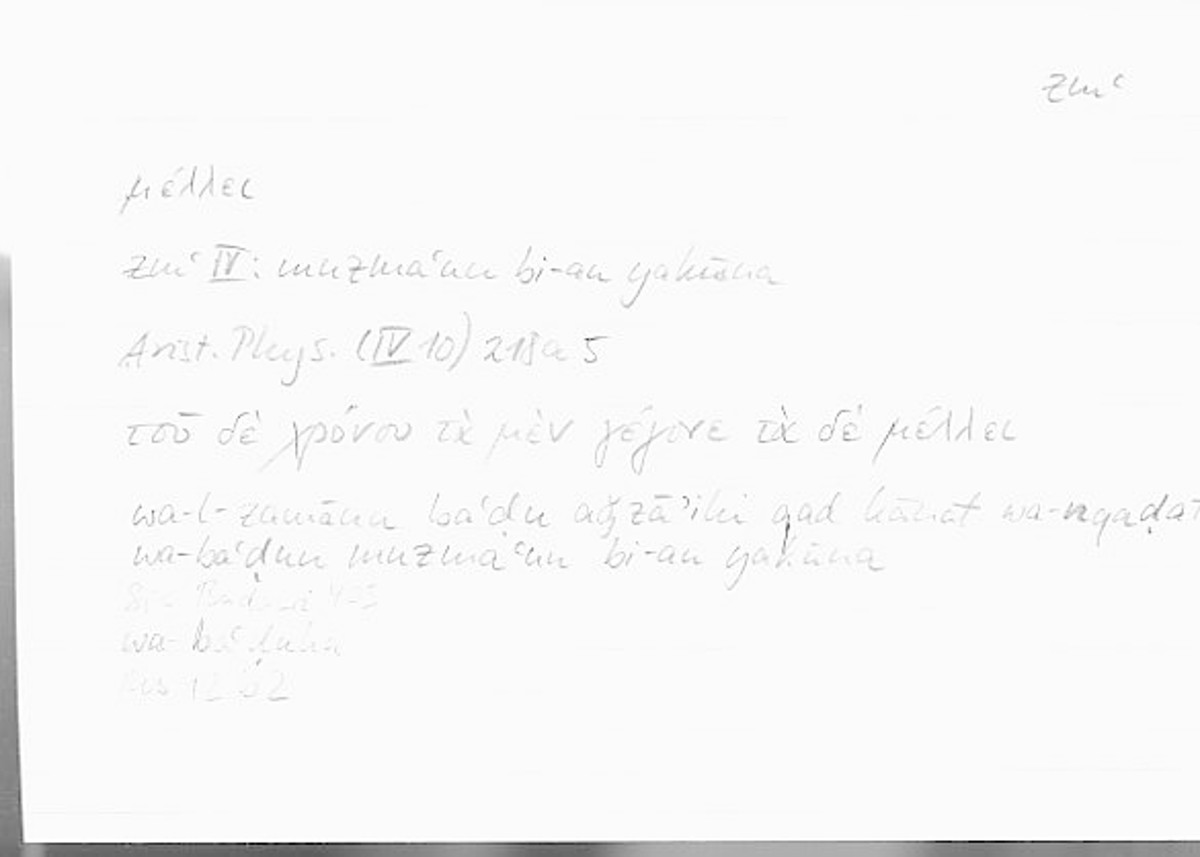 zmʿ
μέλλει
zmʿ IV: muzmaʿun bi-an yakūna
Arist. Phys. (IV 10) 218a 5
τοῦ δὲ χρόνου τὰ μὲν γέγονε τὰ δὲ μέλλει
wa-l-zamānu baʿḍu aǧzāʾihi qad kānat wa-nqaḍat
wa-baʿḍun muzmaʿun bi-an yakūna
wa-baʿḍuhā